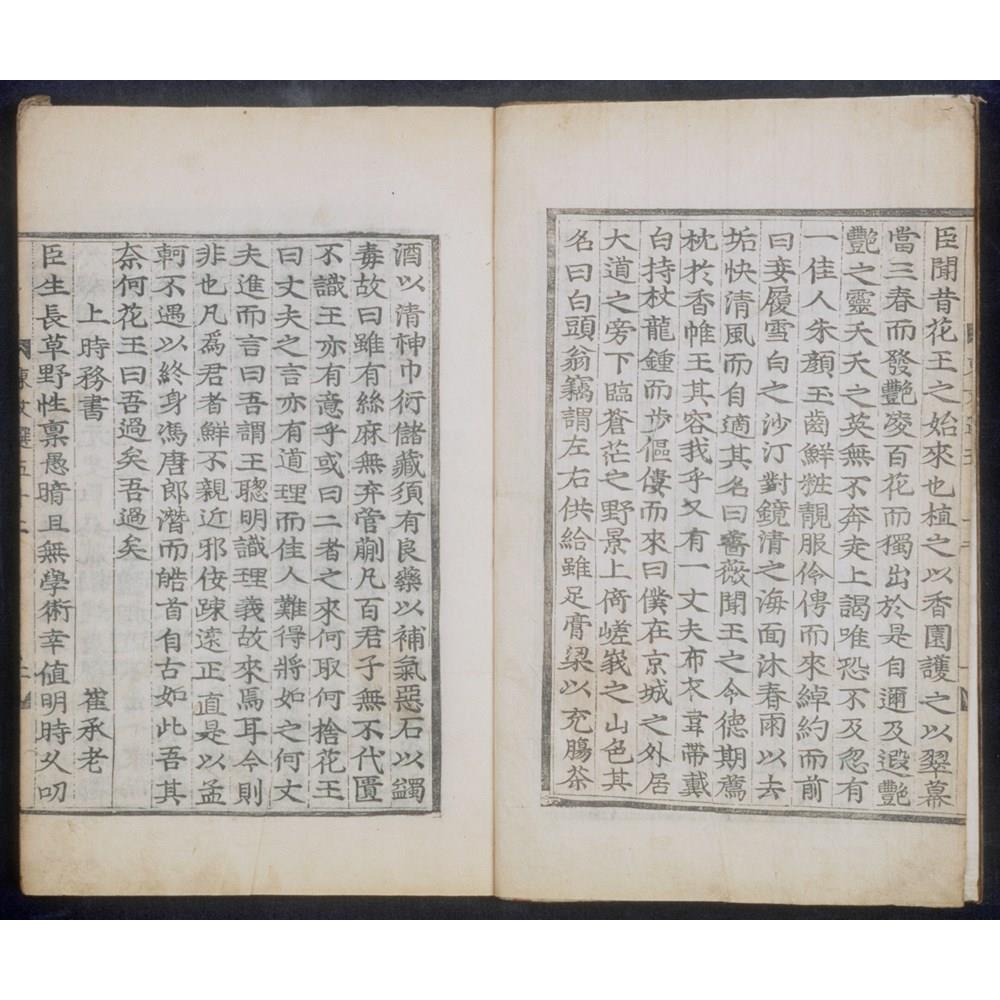 臣聞昔花王之始來也植之以香園護之以翠幕
當三春而發艷凌百花而獨出於是自邇及遐艷
艷之靈夭夭之英無不奔走上謁唯恐不及忽有
一佳人朱顔玉齒鮮粧靚服伶俜而來綽約而前
曰妾履雪白之沙汀對鏡清之海面沐春雨以去
垢快清風而自適其名曰薔薇聞王之令德期薦
枕於香帷王其容我乎又有一丈夫布衣韋帶戴
白持杖龍鍾而步傴僂而來曰僕在京城之外居
大道之旁下臨蒼茫之野景上倚嵯峩之山色其
名曰白頭翁竊謂左右供給雖足膏粱以充膓茶
酒以清神巾衍儲藏須有良藥以補氣惡石以蠲
毒故曰雖有絲麻無弃管蒯凡百君子無不代匱
不識王亦有意乎或曰二者之來何取何捨花王
曰丈夫之言亦有道理而佳人難得將如之何丈
夫進而言曰吾謂王聦明識理義故來焉耳今則
非也凡爲君者鮮不親近邪佞踈遠正直是以孟
軻不遇以終身馮唐郎潛而皓首自古如此吾其
奈何花王曰吾過矣吾過矣
上時務書 崔承老
臣生長草野性禀愚暗且無學術幸值明時夊叨
東文選五十二 二